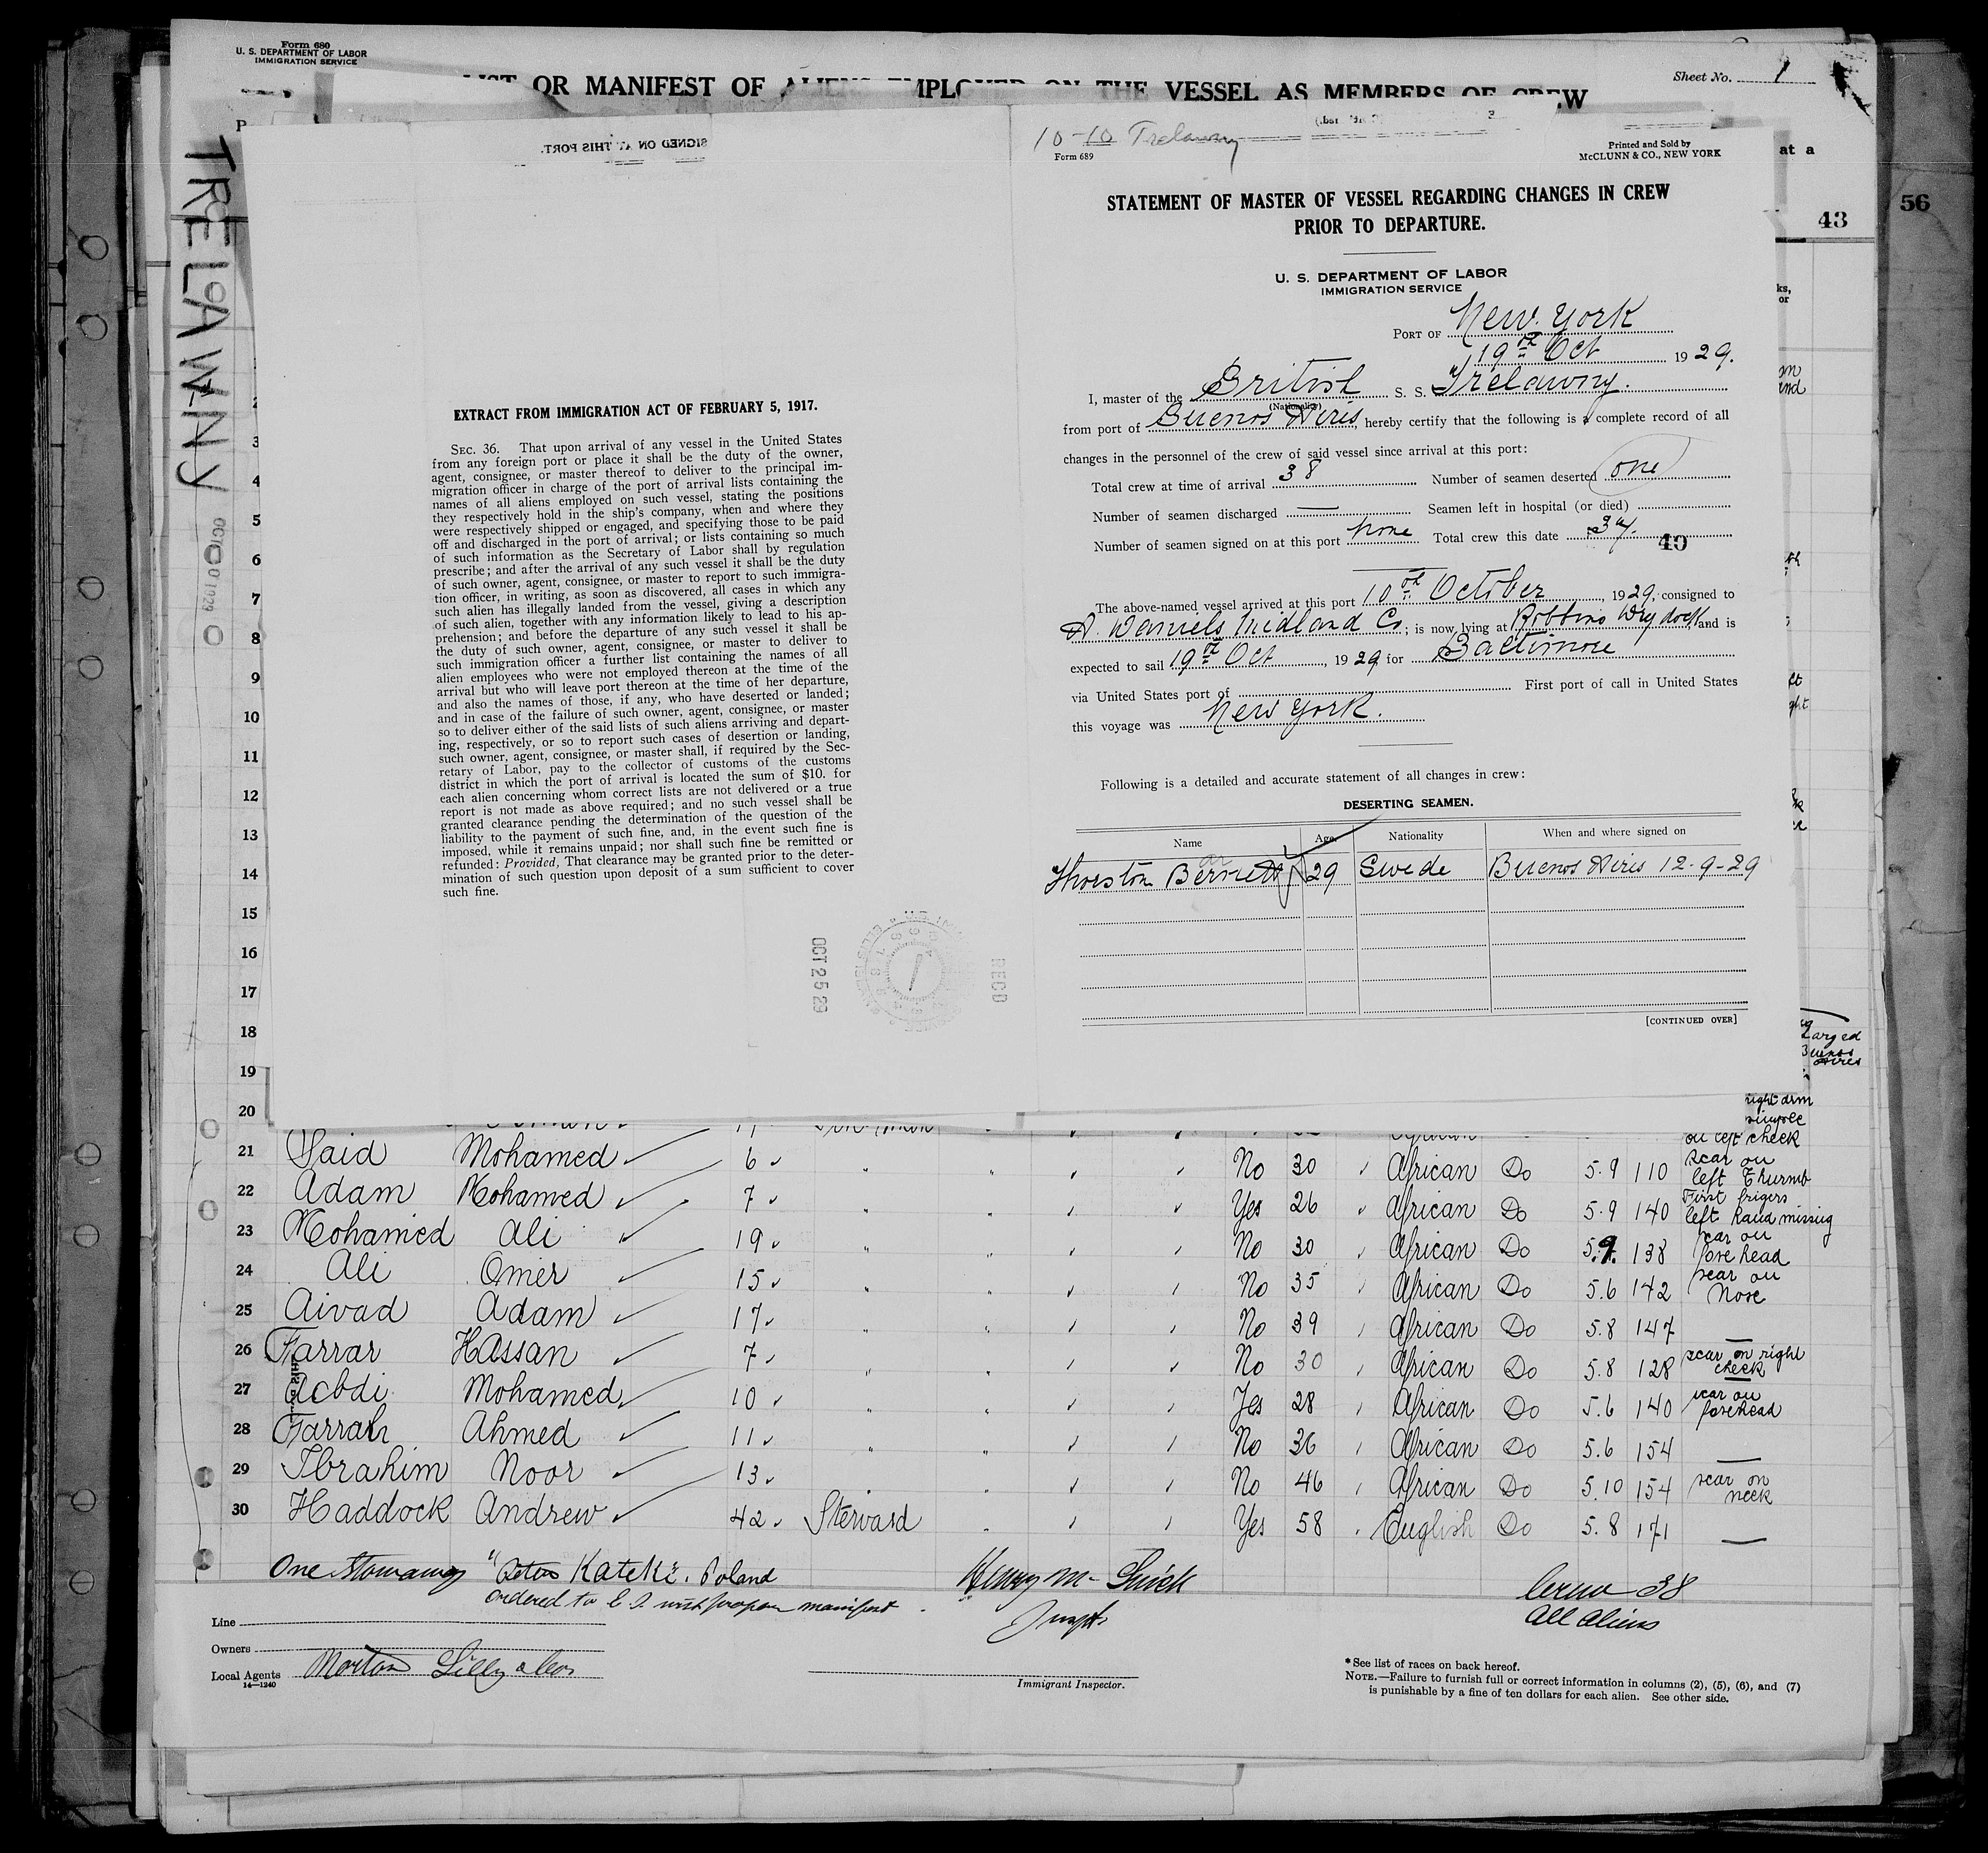 Form 680
U. S. DEPARTMENT OF LABOR
IMMIGRATION SERVICE
OR MANIFEST OF ALIENS EMPLOYED ON THE VESSEL AS MEMBERS OF CREW
Sheet No. 1
at a
43
56
TRELAWNY
SIGNED ON AT THIS PORT.
EXTRACT FROM IMMIGRATION ACT OF FEBRUARY 5, 1917.
SEC. 36. That upon arrival of any vessel in the United States
from any foreign port or place it shall be the duty of the owner,
agent, consignee, or master thereof to deliver to the principal im-
migration officer in charge of the port of arrival lists containing the
names of all aliens employed on such vessel, stating the positions
they respectively hold in the ship's company, when and where they
were respectively shipped or engaged, and specifying those to be paid
off and discharged in the port of arrival; or lists containing so much
of such information as the Secretary of Labor shall by regulation
prescribe; and after the arrival of any such vessel it shall be the duty
of such owner, agent, consignee, or master to report to such immigra-
tion officer, in writing, as soon as discovered, all cases in which any
such alien has illegally landed from the vessel, giving a description
of such alien, together with any information likely to lead to his ap-
prehension; and before the departure of any such vessel it shall be
the duty of such owner, agent, consignee, or master to deliver to
such immigration officer a further list containing the names of all
alien employees who were not employed thereon at the time of the
arrival but who will leave port thereon at the time of her departure,
and also the names of those, if any, who have deserted or landed;
and in case of the failure of such owner, agent, consignee, or master
so to deliver either of the said lists of such aliens arriving and depart-
ing, respectively, or so to report such cases of desertion or landing,
such owner, agent, consignee, or master shall, if required by the Sec-
retary of Labor, pay to the collector of customs of the customs
district in which the port of arrival is located the sum of $10. for
each alien concerning whom correct lists are not delivered or a true
report is not made as above required; and no such vessel shall be
granted clearance pending the determination of the question of the
liability to the payment of such fine, and, in the event such fine is
imposed, while it remains unpaid; nor shall such fine be remitted or
refunded: Provided, That clearance may be granted prior to the deter-
mination of such question upon deposit of a sum sufficient to cover
such fine.
OCT 25 29
RECD
10-10 Trelawny
Form 689
Printed and Sold by
McCLUNN & CO., NEW YORK
STATEMENT OF MASTER OF VESSEL REGARDING CHANGES IN CREW
PRIOR TO DEPARTURE.
U. S. DEPARTMENT OF LABOR
IMMIGRATION SERVICE
PORT OF New York
19th Oct 1929.
I, master of the British S. S. "Trelawny.
(Nationality)
from port of Buenos Aires, hereby certify that the following is a complete record of all
changes in the personnel of the crew of said vessel since arrival at this port:
Total crew at time of arrival 38 Number of seamen deserted one
Number of seamen discharged — Seamen left in hospital (or died)
Number of seamen signed on at this port None Total crew this date 37.
40
The above-named vessel arrived at this port 10th October, 1929, consigned to
A. Daniels Midland Co; is now lying at Robbins Dry dock, and is
expected to sail 19th Oct, 1929 for Baltimore
via United States port of First port of call in United States
this voyage was New York.
Following is a detailed and accurate statement of all changes in crew:
DESERTING SEAMEN.
Name Age Nationality When and where signed on
Thorston Bernett 29 Swede Buenos Aires 12-9-29
[CONTINUED OVER]
2
3
4
5
6
7
8
9
10
11
12
13
14
15
16
17
18
19
20
right arm
on left cheek
21 Said Mohamed 6 " " No 30 African Do 5.9 110 scar on left Thumb
22 Adam Mohamed 7 " " Yes 26 African Do 5.9 140 First fingers left hand missing
23 Mohamed Ali 19 " " No 30 African Do 5.9. 138 scar on forehead
24 Ali Omer 15 " " No 35 African Do 5.6 142 scar on Nose
25 Aivad Adam 17 " " No 39 African Do 5.8 147 —
26 Farrar Hassan 7 " " No 30 African Do 5.8 128 scar on right cheek
27 Acbdi Mohamed 10 " " Yes 28 African Do 5.6 140 scar on forehead
28 Farrah Ahmed 11 " " No 36 African Do 5.6 154 —
29 Ibrahim Noor 13 " No 46 African Do 5.10 154 scar on neck
30 Haddock Andrew 42 Steward " Yes 58 English Do 5.8 171 —
One Stowaway "Peter Kateki. Poland
ordered to E I with proper manifest.
Crew 38
All Aliens
Line
Owners
Local Agents Morton Lilly & Co
14—1240
Immigrant Inspector.
*See list of races on back hereof.
NOTE.—Failure to furnish full or correct information in columns (2), (5), (6), and (7)
is punishable by a fine of ten dollars for each alien. See other side.